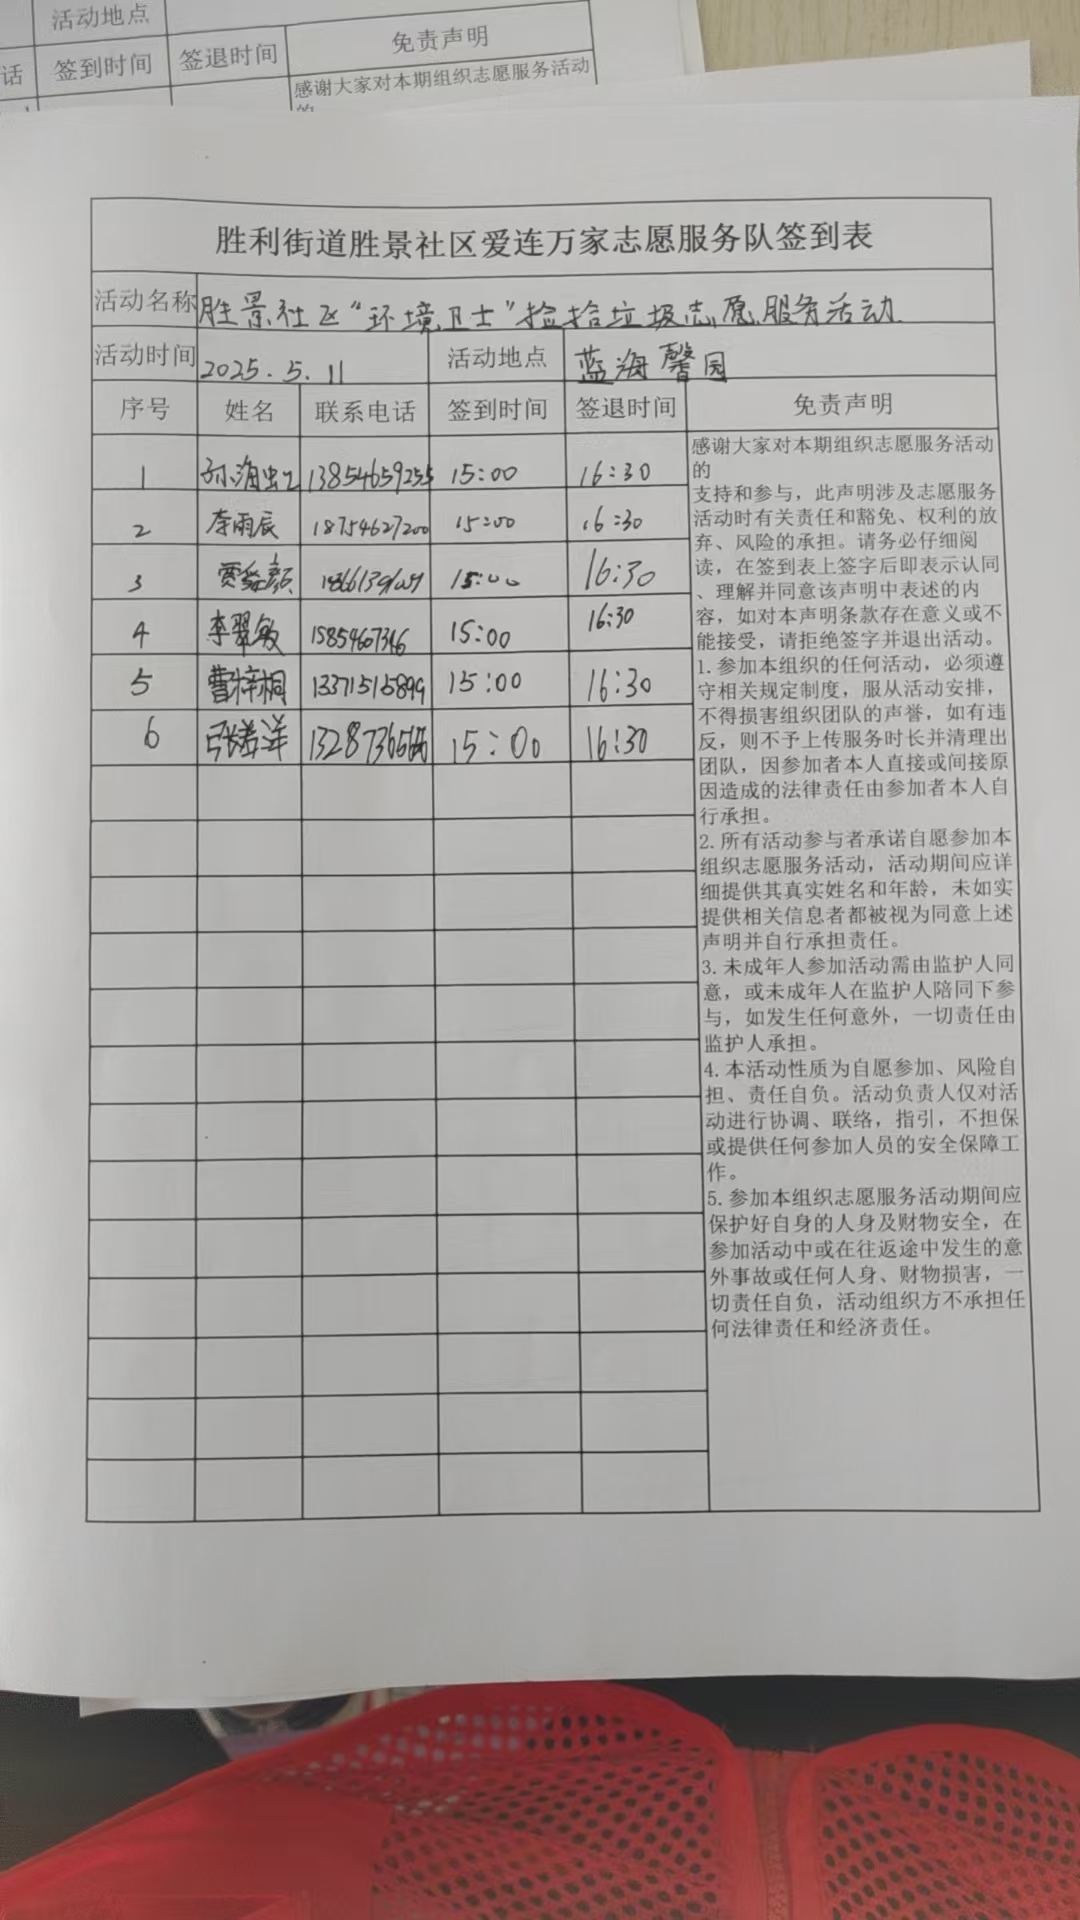 活动地点
话 签到时间 签退时间 免责声明
感谢大家对本期组织志愿服务活动
的
胜利街道胜景社区爱连万家志愿服务队签到表
活动名称 胜景社区“环境卫士”捡拾垃圾志愿服务活动
活动时间 2025.5.11 活动地点 蓝海馨园
序号 姓名 联系电话 签到时间 签退时间 免责声明
1 13854659255 15:00 16:30
2 李雨辰 18754627200 15:00 16:30
3 15:00 16:30
4 李翠敏 15854607346 15:00 16:30
5 曹梓桐 13371515899 15:00 16:30
6 张若洋 15:00 16:30
感谢大家对本期组织志愿服务活动
的
支持和参与，此声明涉及志愿服务
活动时有关责任和豁免、权利的放
弃、风险的承担。请务必仔细阅
读，在签到表上签字后即表示认同
、理解并同意该声明中表述的内
容，如对本声明条款存在意义或不
能接受，请拒绝签字并退出活动。
1.参加本组织的任何活动，必须遵
守相关规定制度，服从活动安排，
不得损害组织团队的声誉，如有违
反，则不予上传服务时长并清理出
团队，因参加者本人直接或间接原
因造成的法律责任由参加者本人自
行承担。
2.所有活动参与者承诺自愿参加本
组织志愿服务活动，活动期间应详
细提供其真实姓名和年龄，未如实
提供相关信息者都被视为同意上述
声明并自行承担责任。
3.未成年人参加活动需由监护人同
意，或未成年人在监护人陪同下参
与，如发生任何意外，一切责任由
监护人承担。
4.本活动性质为自愿参加、风险自
担、责任自负。活动负责人仅对活
动进行协调、联络，指引，不担保
或提供任何参加人员的安全保障工
作。
5.参加本组织志愿服务活动期间应
保护好自身的人身及财物安全，在
参加活动中或在往返途中发生的意
外事故或任何人身、财物损害，一
切责任自负，活动组织方不承担任
何法律责任和经济责任。